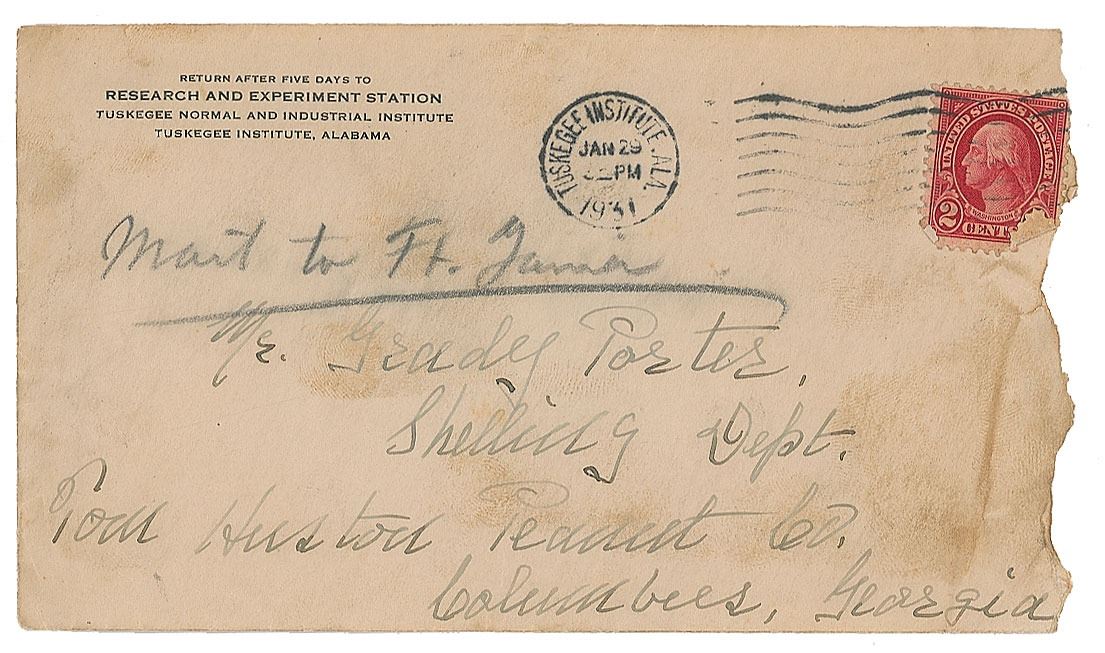 RETURN AFTER FIVE DAYS TO
RESEARCH AND EXPERIMENT STATION
TUSKEGEE NORMAL AND INDUSTRIAL INSTITUTE
TUSKEGEE INSTITUTE, ALABAMA
TUSKEGEE INSTITUTE, ALA.
JAN 29
PM
1931
UNITED STATES POSTAGE
WASHINGTON
2 CENT
to Ft.
Mr. Grady Porter,
Shelling Dept.
Tom Huston Peanut Co.
Columbus, Georgia